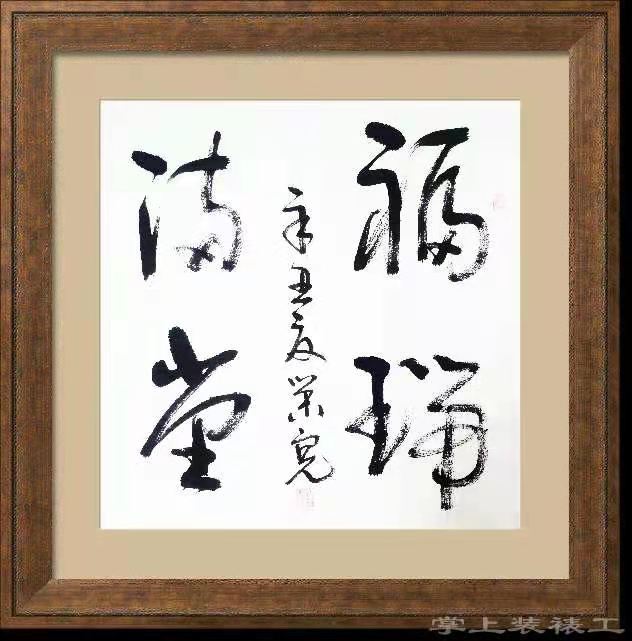 福瑞
满堂
辛丑夏荣宽
掌上装裱工